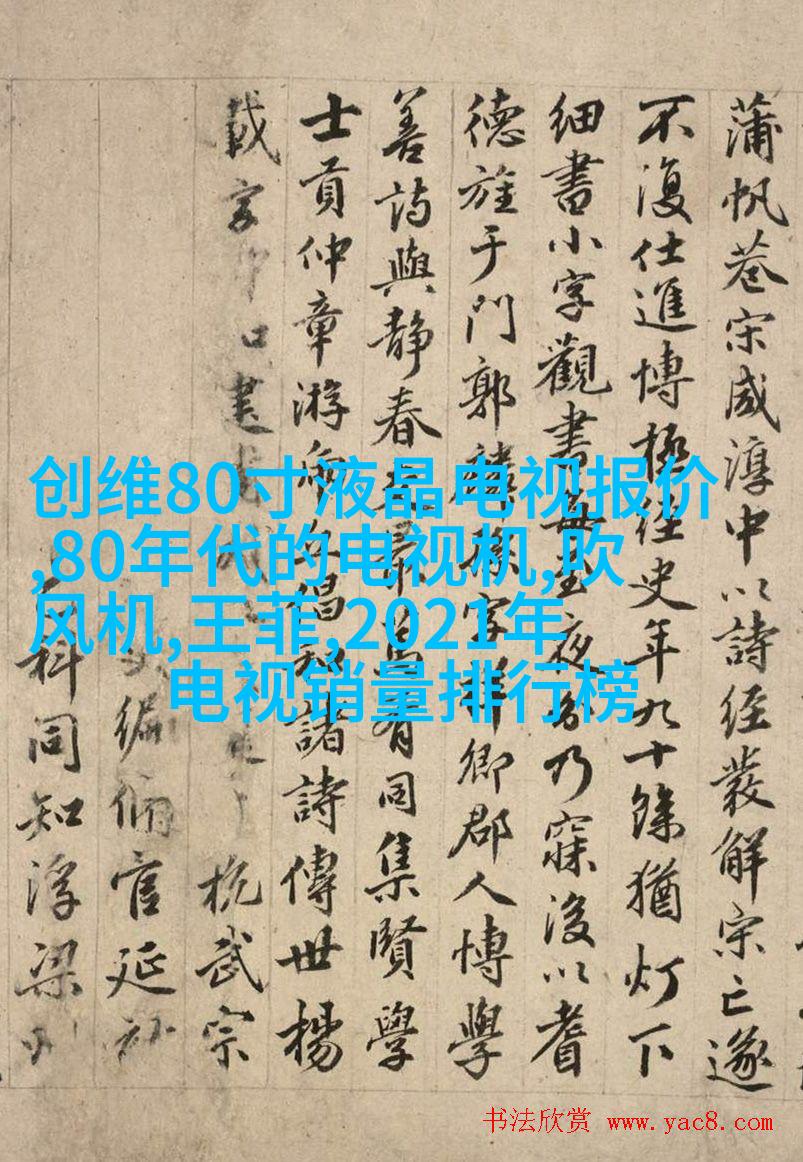 创维80寸液晶电视报价
,80年代的电视机,吹
风机,王菲,2021年
电视销量排行榜
蒲帆巷宋咸淳中以詩经發解宋亡遂
不復仕進博極经史年九十餘猶灯下
细書小字觀書每至夜分乃寐後以耆
德旌于門郭麟孫字祥卿郡人博學
善詩與静春有同集賢學
士貢仲章游倡和諸詩傳世楊
載字杭武宗
编脩官延祐
科同知浮梁州
书法欣赏 www.yac8.com